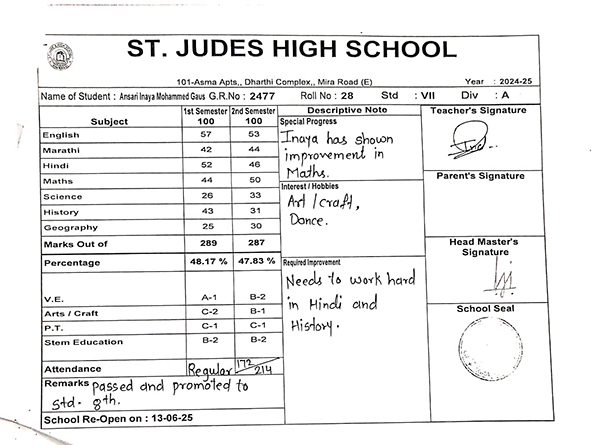 ST. JUDES HIGH SCHOOL
101-Asma Apts,, Dharthi Complex,, Mira Road (E) Year : 2024-25
Name of Student : Ansari Inaya Mohammed Gaus G.R.No : 2477 Roll No : 28 Std : VII Div : A
Subject 1st Semester 100 2nd Semester 100
English 57 53
Marathi 42 44
Hindi 52 46
Maths 44 50
Science 26 33
History 43 31
Geography 25 30
Marks Out of 289 287
Percentage 48.17 % 47.83 %
V.E. A-1 B-2
Arts / Craft C-2 B-1
P.T. C-1 C-1
Stem Education B-2 B-2
Attendance Regular 172/214
Remarks passed and promoted to
std. 8th.
School Re-Open on : 13-06-25
Descriptive Note
Special Progress
Inaya has shown
improvement in
Maths.
Interest / Hobbies
Art / craft,
Dance.
Required Improvement
Needs to work hard
in Hindi and
History.
Teacher's Signature
Parent's Signature
Head Master's
Signature
School Seal